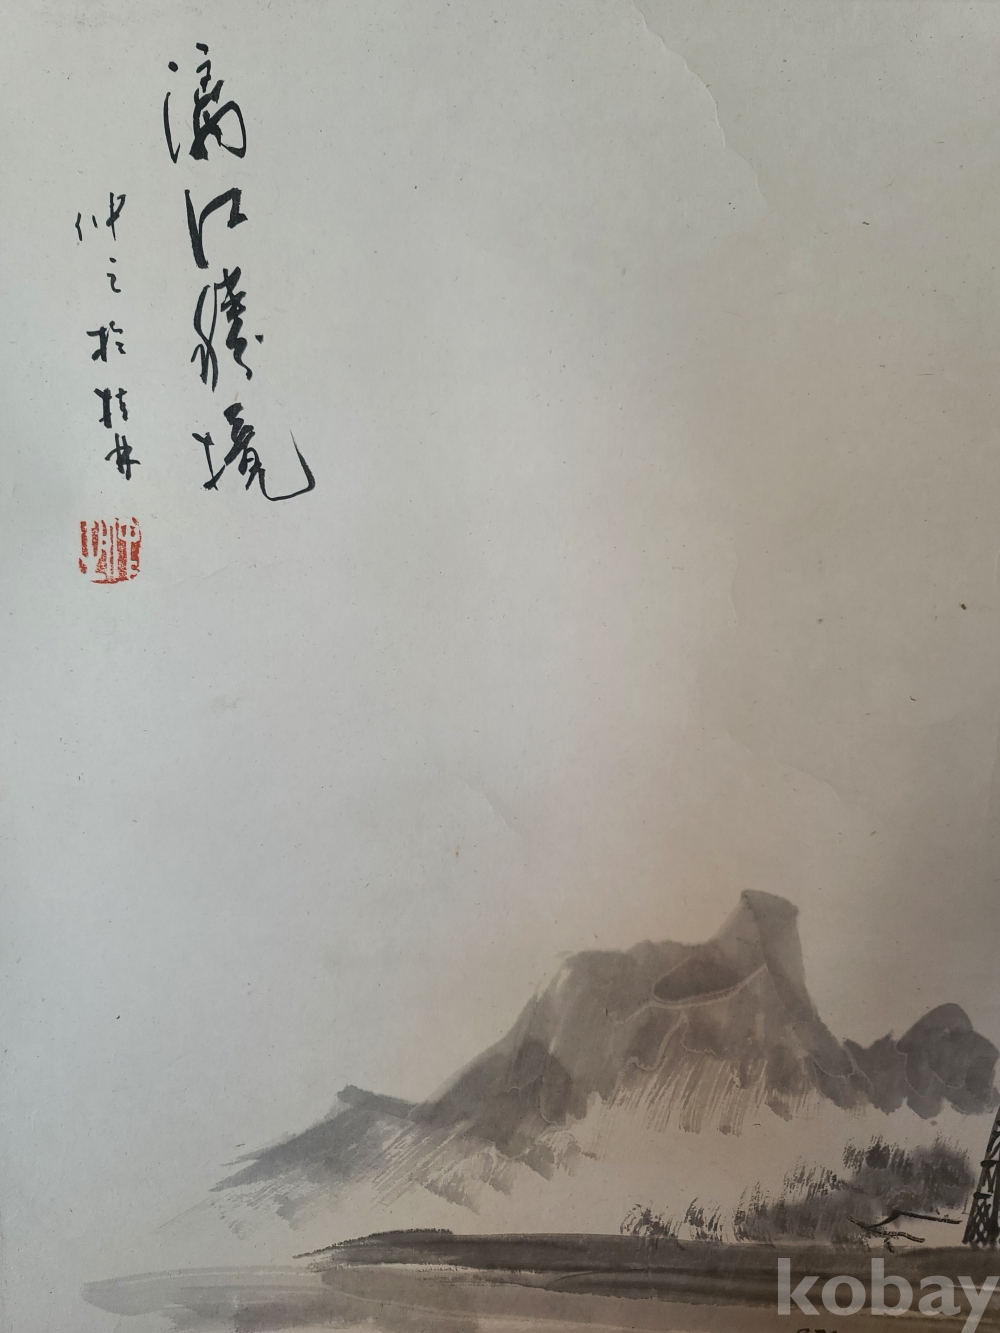 漓江勝境
仲之於桂林
kobay